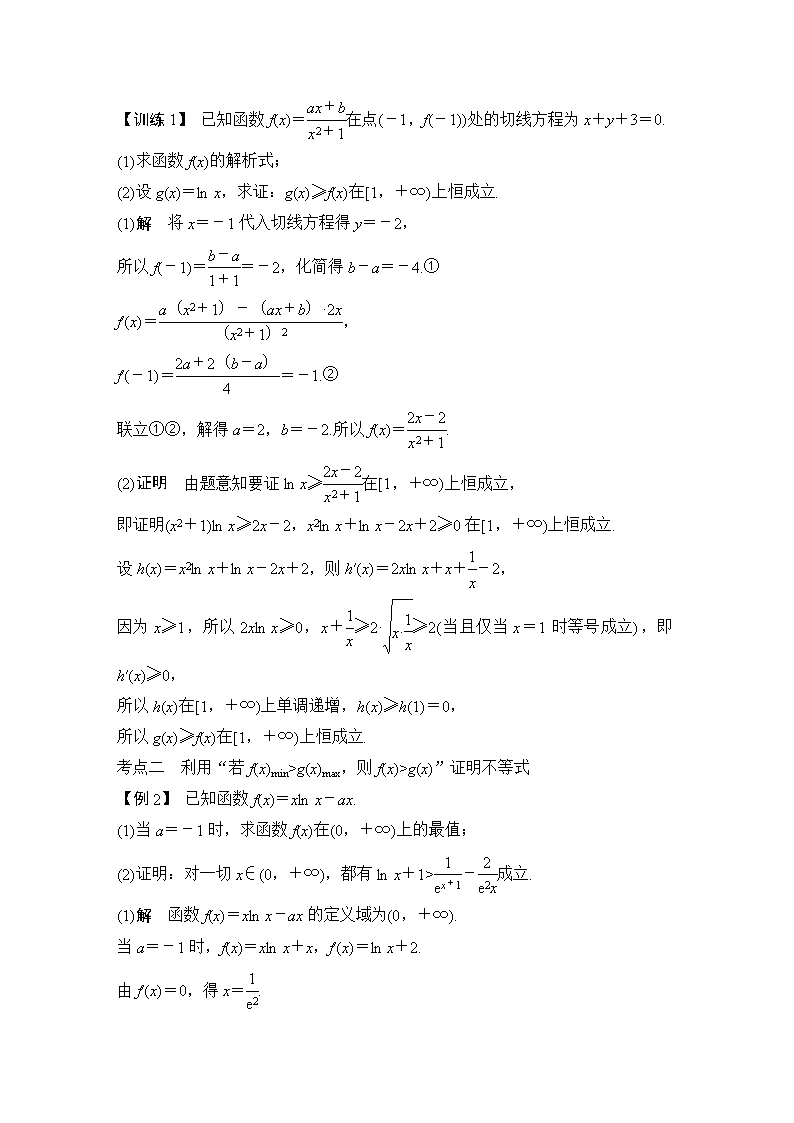 【训练1】 已知函数f(x)=(ax+b)/(x²+1)在点(-1,f(-1))处的切线方程为x+y+3=0.
(1)求函数f(x)的解析式;
(2)设g(x)=ln x,求证:g(x)≥f(x)在[1,+∞)上恒成立.
(1)解 将x=-1代入切线方程得y=-2,
所以f(-1)=(b-a)/(1+1)=-2,化简得b-a=-4.①
f′(x)=(a(x²+1)-(ax+b)·2x)/(x²+1)²,
f′(-1)=(2a+2(b-a))/4=-1.②
联立①②,解得a=2,b=-2.所以f(x)=(2x-2)/(x²+1).
(2)证明 由题意知要证ln x≥(2x-2)/(x²+1)在[1,+∞)上恒成立,
即证明(x²+1)ln x≥2x-2,x²ln x+ln x-2x+2≥0在[1,+∞)上恒成立.
设h(x)=x²ln x+ln x-2x+2,则h′(x)=2xln x+x+1/x-2,
因为x≥1,所以2xln x≥0,x+1/x≥2·√(x·1/x)≥2(当且仅当x=1时等号成立),即
h′(x)≥0,
所以h(x)在[1,+∞)上单调递增,h(x)≥h(1)=0,
所以g(x)≥f(x)在[1,+∞)上恒成立.
考点二 利用“若f(x)min>g(x)max,则f(x)>g(x)”证明不等式
【例2】 已知函数f(x)=xln x-ax.
(1)当a=-1时,求函数f(x)在(0,+∞)上的最值;
(2)证明:对一切x∈(0,+∞),都有ln x+1>1/eˣ⁺¹-2/(e²x)成立.
(1)解 函数f(x)=xln x-ax的定义域为(0,+∞).
当a=-1时,f(x)=xln x+x,f′(x)=ln x+2.
由f′(x)=0,得x=1/e².